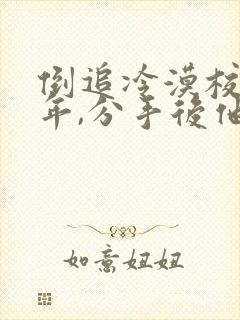 倒追冷漠校
年,分手後他
如意妞妞